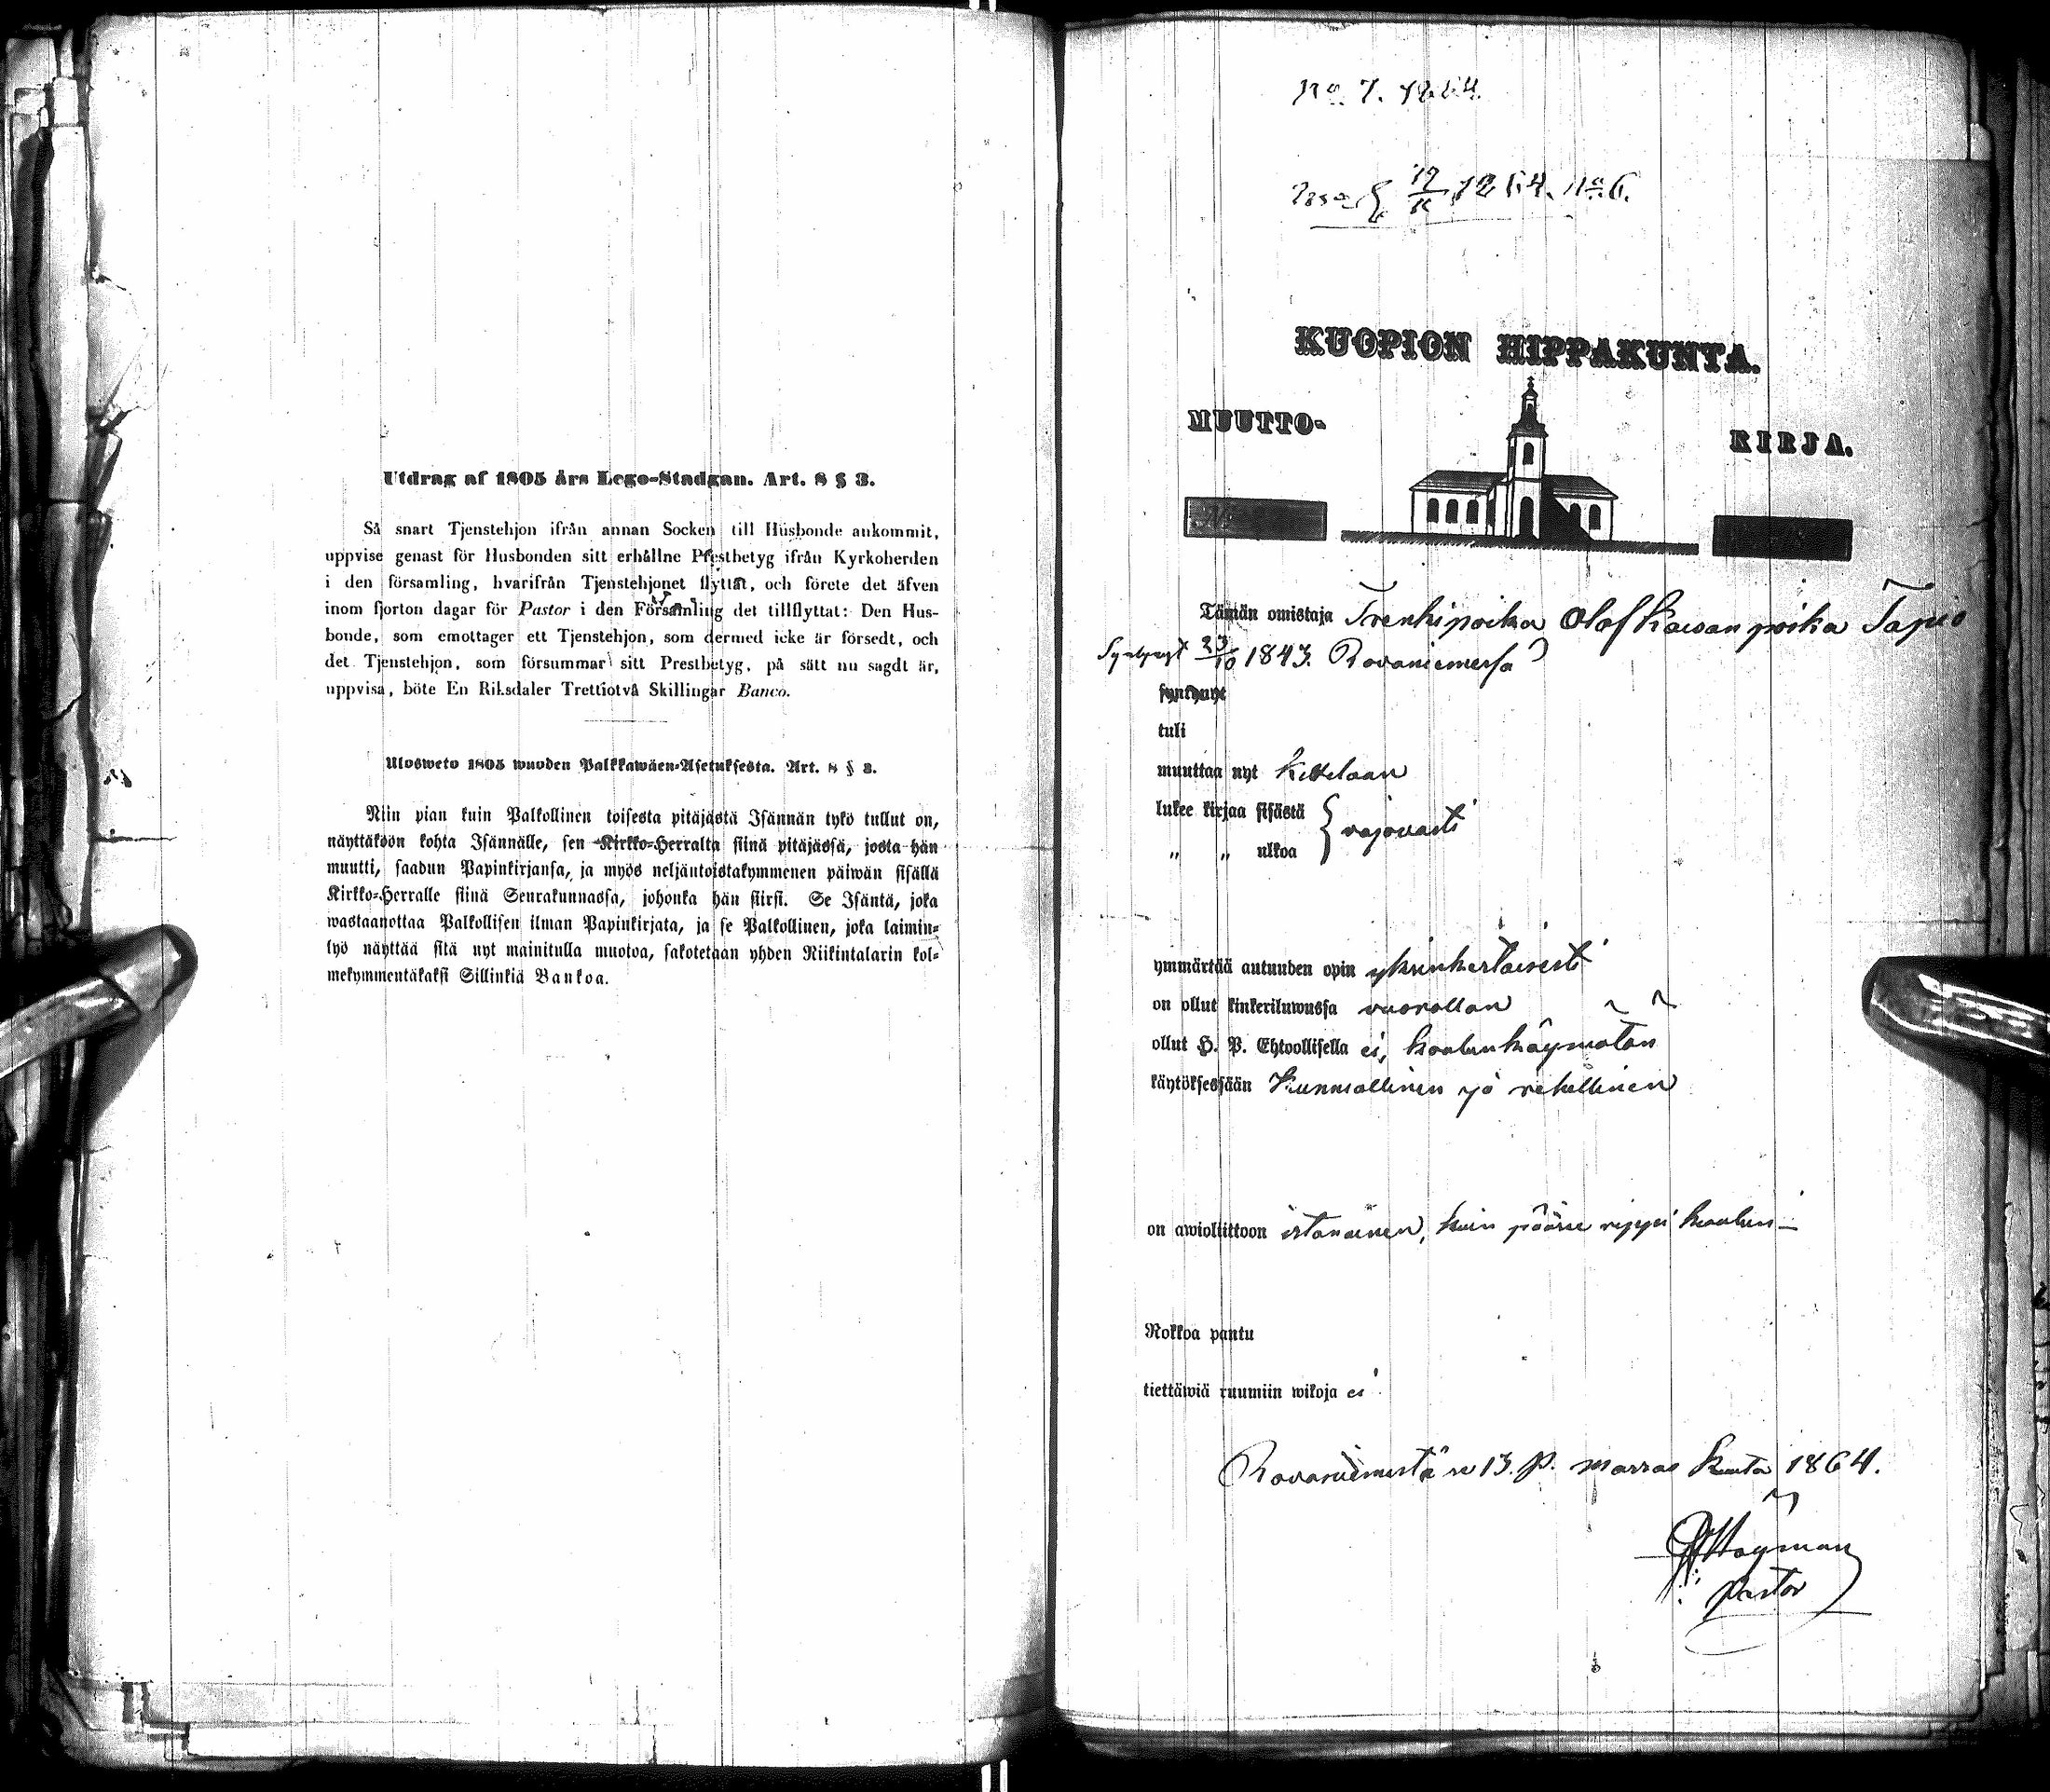 Utdrag af 1805 års Lego-Stadgan. Art. 8 § 3.
Så snart Tjenstehjon ifrån annan Socken till Husbonde ankommit,
uppvise genast för Husbonden sitt erhållne Prestbetyg ifrån Kyrkoherden
i den församling, hvarifrån Tjenstehjonet flyttat, och förete det äfven
inom fjorton dagar för Pastor i den Församling det tillflyttat: Den Hus-
bonde, som emottager ett Tjenstehjon, som dermed icke är försedt, och
det Tjenstehjon, som försummar sitt Prestbetyg, på sätt nu sagdt är,
uppvisa, böte En Riksdaler Trettiotvå Skillingar Banco.
Ulosweto 1805 wuoden Palkkawäen-Asetuksesta. Art. 8 § 3.
Niin pian kuin Palkollinen toisesta pitäjästä Isännän tykö tullut on,
näyttäköön kohta Isännälle, sen Kirkko-Herralta siinä pitäjässä, josta hän
muutti, saadun Papinkirjansa, ja myös neljäntoistakymmenen päiwän sisällä
Kirkko-Herralle siinä Seurakunnassa, johonka hän siirsi. Se Isäntä, joka
wastaanottaa Palkollisen ilman Papinkirjata, ja se Palkollinen, joka laimin-
lyö näyttää sitä nyt mainitulla muotoa, sakotetaan yhden Riikintalarin kol-
mekymmentäkaksi Sillinkiä Bankoa.
No. 7. 1864.
1864. No 6.
KUOPION HIPPAKUNTA.
MUUTTO-
KIRJA.
Tämän omistaja Trenkipoika Olof Kaisan poika Tapio
Syntynyt 23/10 1843. Rovaniemessä
syntynyt
tuli
muuttaa nyt Kittelään
lukee kirjaa sisästä } vajovasti
„ „ ulkoa
ymmärtää autuuden opin yksinkertaisesti
on ollut kinkeriluwussa vuorollan
ollut H. P. Ehtoollisella ei, koulunkäymätön
käytöksessään Kunniallinen ja rehellinen
on awioliittoon istanainen, kuin pääsee rippi kouluun
Rokkoa pantu
tiettäwiä ruumiin wikoja ei
Rovaniemestä se 13. p. marras kuuta 1864.
Höyman
Pastor